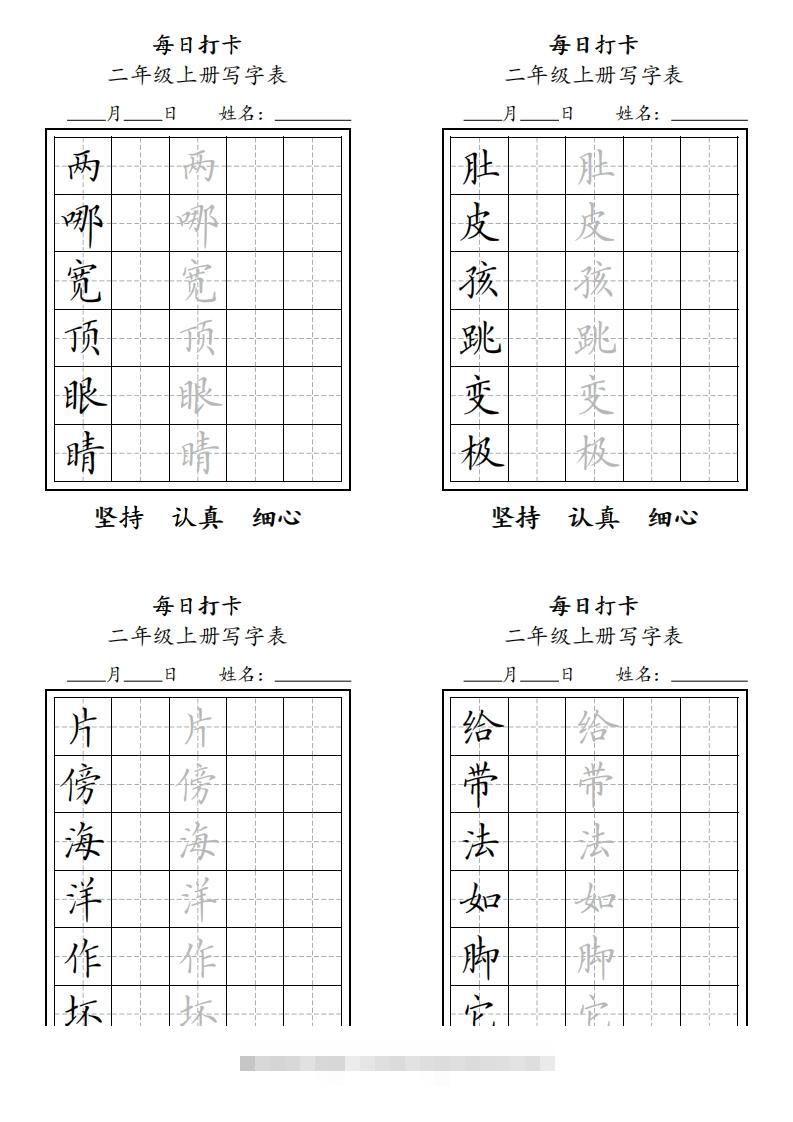 每日打卡
二年级上册写字表
____月____日 姓名：________
两 两
哪 哪
宽 宽
顶 顶
眼 眼
睛 睛
坚持 认真 细心
每日打卡
二年级上册写字表
____月____日 姓名：________
肚 肚
皮 皮
孩 孩
跳 跳
变 变
极 极
坚持 认真 细心
每日打卡
二年级上册写字表
____月____日 姓名：________
片 片
傍 傍
海 海
洋 洋
作 作
坏 坏
每日打卡
二年级上册写字表
____月____日 姓名：________
给 给
带 带
法 法
如 如
脚 脚
它 它